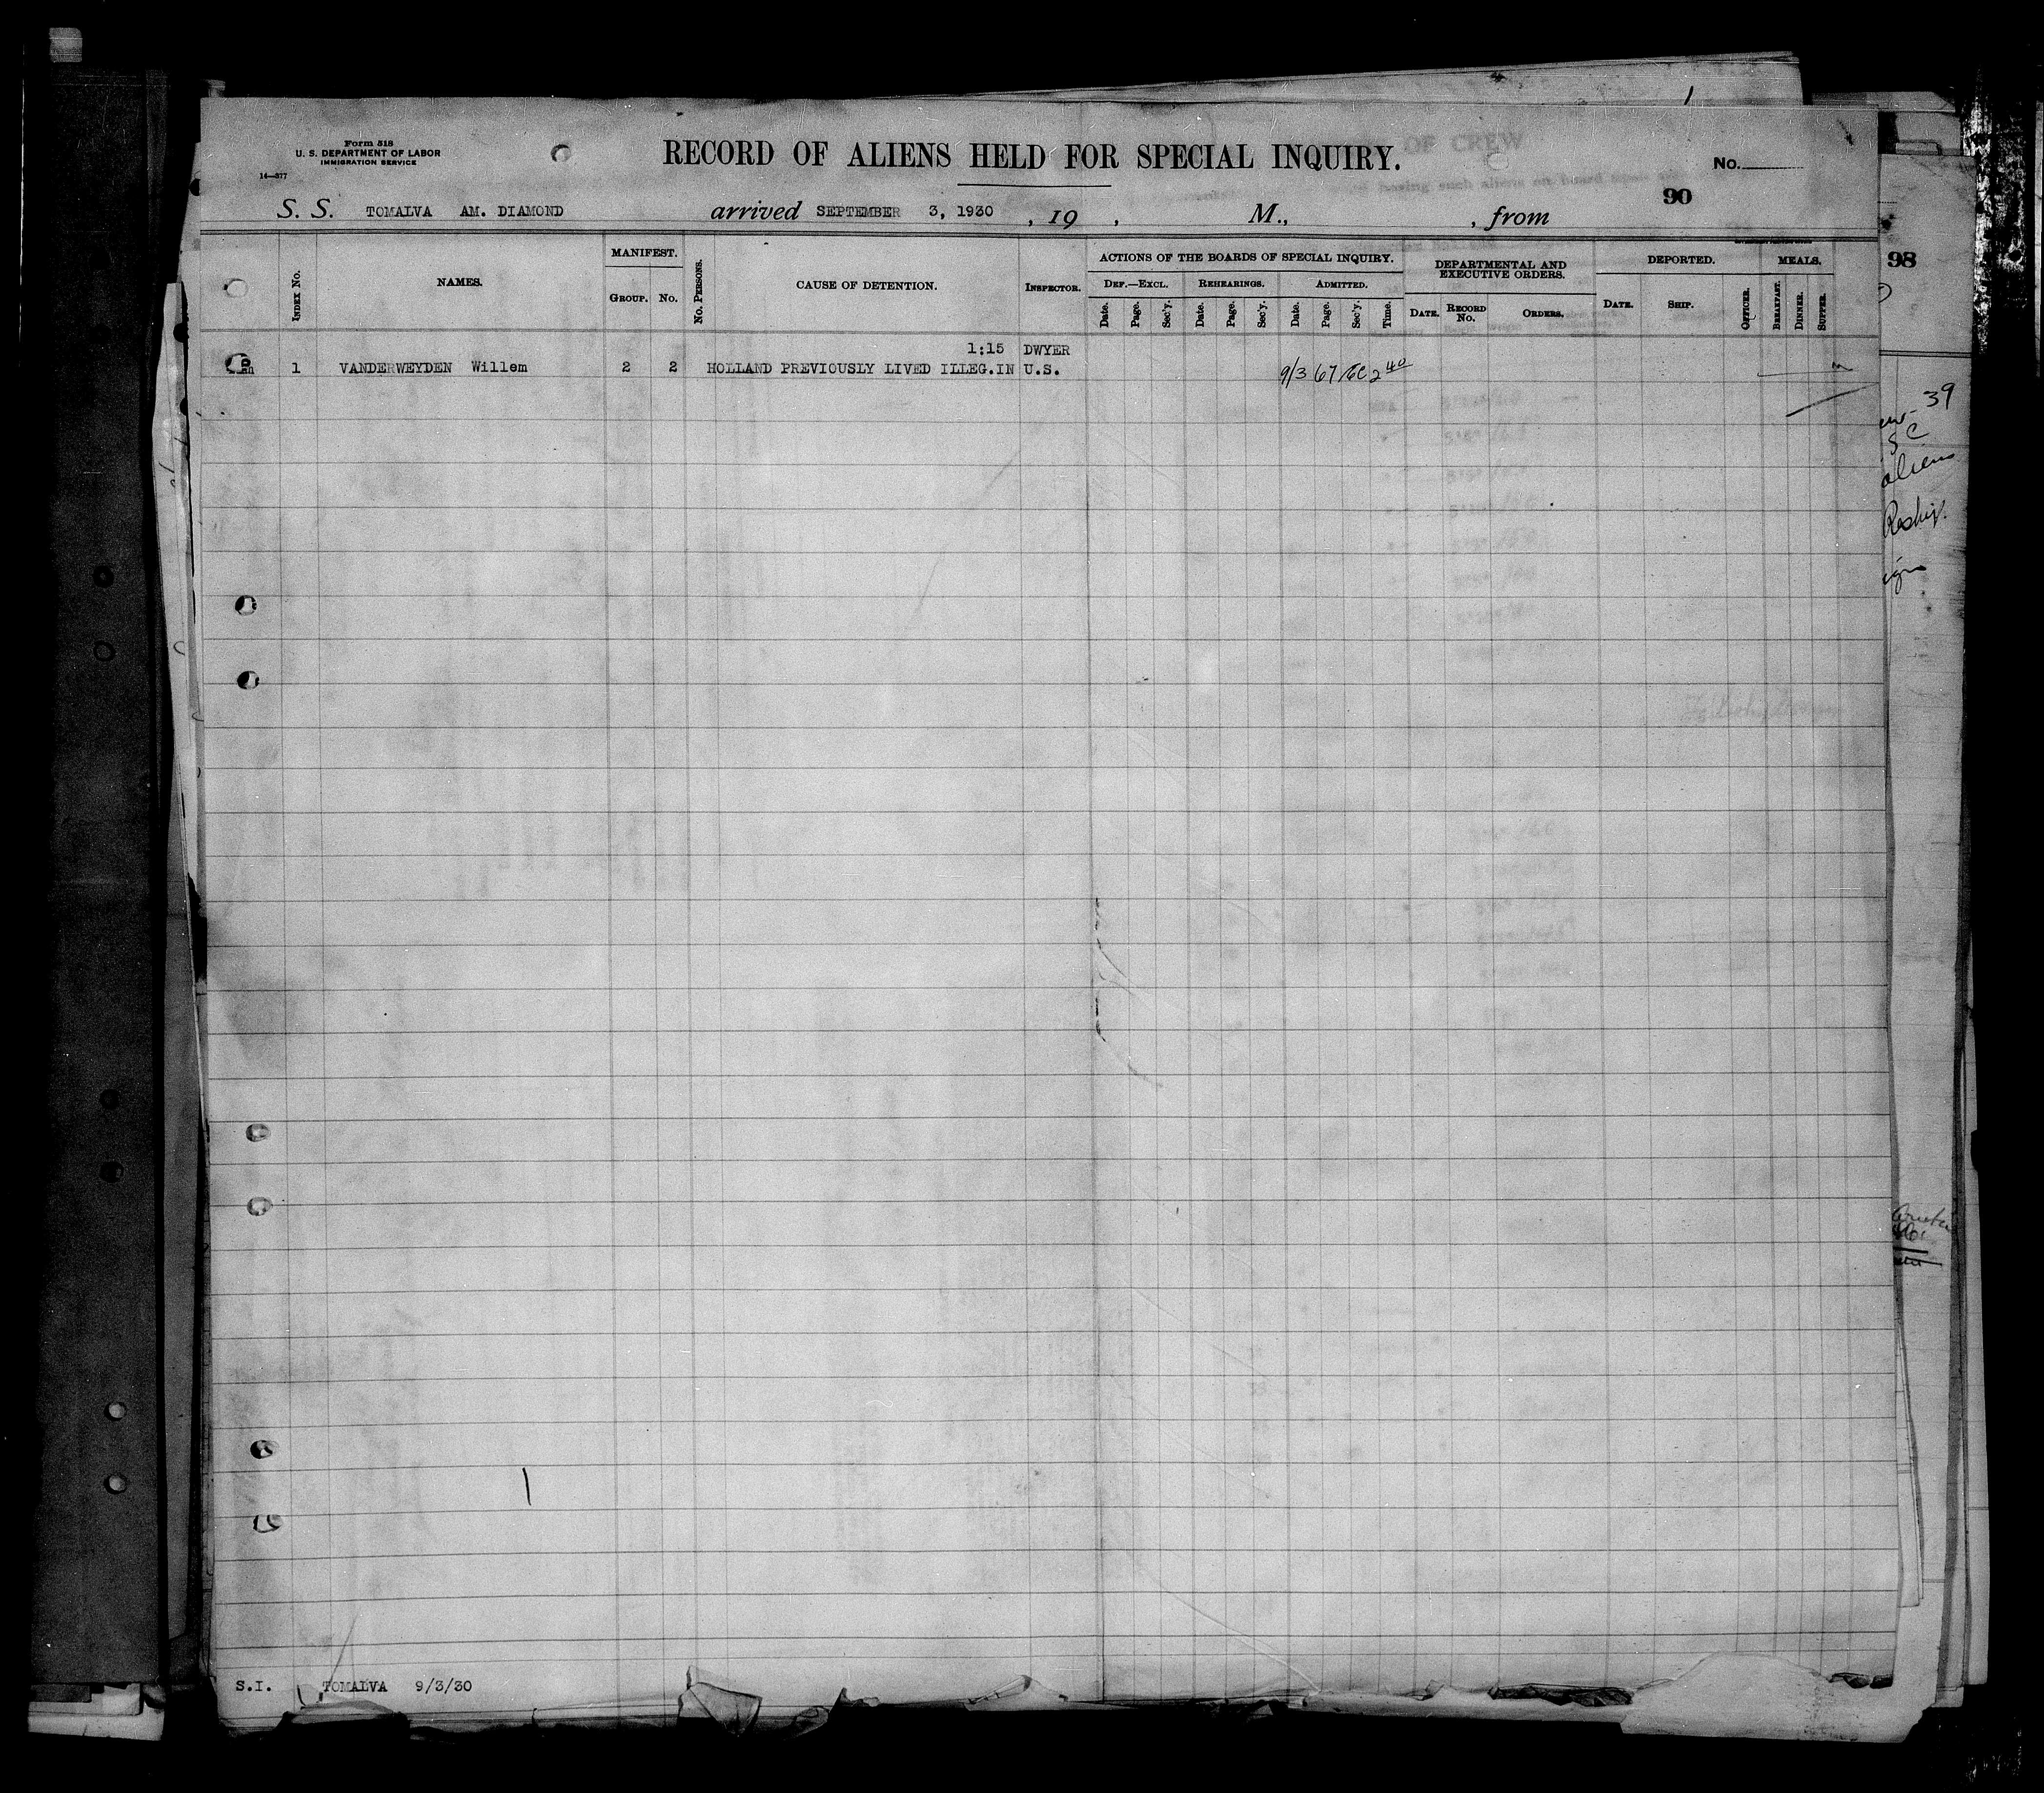 Form 518
U. S. DEPARTMENT OF LABOR
IMMIGRATION SERVICE
14—377
RECORD OF ALIENS HELD FOR SPECIAL INQUIRY.
OF CREW
No.
90
S. S. TOMALVA AM. DIAMOND arrived SEPTEMBER 3, 1930 , 19 , M., , from
98
INDEX No.
NAMES.
MANIFEST.
GROUP. No.
No. PERSONS.
CAUSE OF DETENTION.
INSPECTOR.
ACTIONS OF THE BOARDS OF SPECIAL INQUIRY.
DEF.—EXCL. REHEARINGS. ADMITTED.
Date. Page. Sec'y. Date. Page. Sec'y. Date. Page. Sec'y. Time.
DEPARTMENTAL AND
EXECUTIVE ORDERS.
DATE. RECORD No. ORDERS.
DEPORTED.
DATE. SHIP. OFFICER.
MEALS.
BREAKFAST. DINNER. SUPPER.
1:15 DWYER
1 VANDERWEYDEN Willem 2 2 HOLLAND PREVIOUSLY LIVED ILLEG.IN U.S. 9/3 67 2 40
39
aliens
S.I. TOMALVA 9/3/30